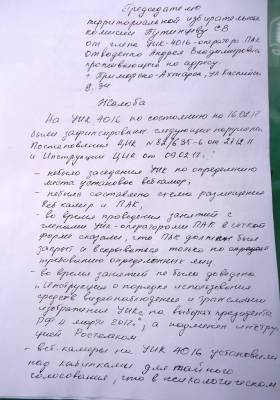 Председателю
территориальной избирательной
комиссии СВ
от члена УИК-4016-оператора ПАК
Отводенко Андрея Владимировича
проживающей по адресу:
г. Приморско-Ахтарск, ул.
Жалоба
На УИК 4016 по состоянию на 16.02.12
были зафиксированы следующие нарушения
Постановления ЦИК от 27.12.11
и Инструкции ЦИК от 09.02.12:
- небыло заседания УИК по определению
места установок вебкамер;
- небыло составлена схема размещения
веб камер и ПАК;
- во время проведения занятий с
членами УИК-операторами ПАК в устной
форме сказали, что ПАК должен был
закрыт и вскрывается только по
требованию определенных лиц
- во время занятий не была доведена
"Инструкция о порядке использования
средств видеонаблюдения и трансляции
изображения УИКе по выборам президента
РФ 4 марта 2012г", а подменен инстру-
кцией Ростелеком
- веб-камеры на УИК 4016 установили
над кабинками для тайного
голосования, что в психологическом